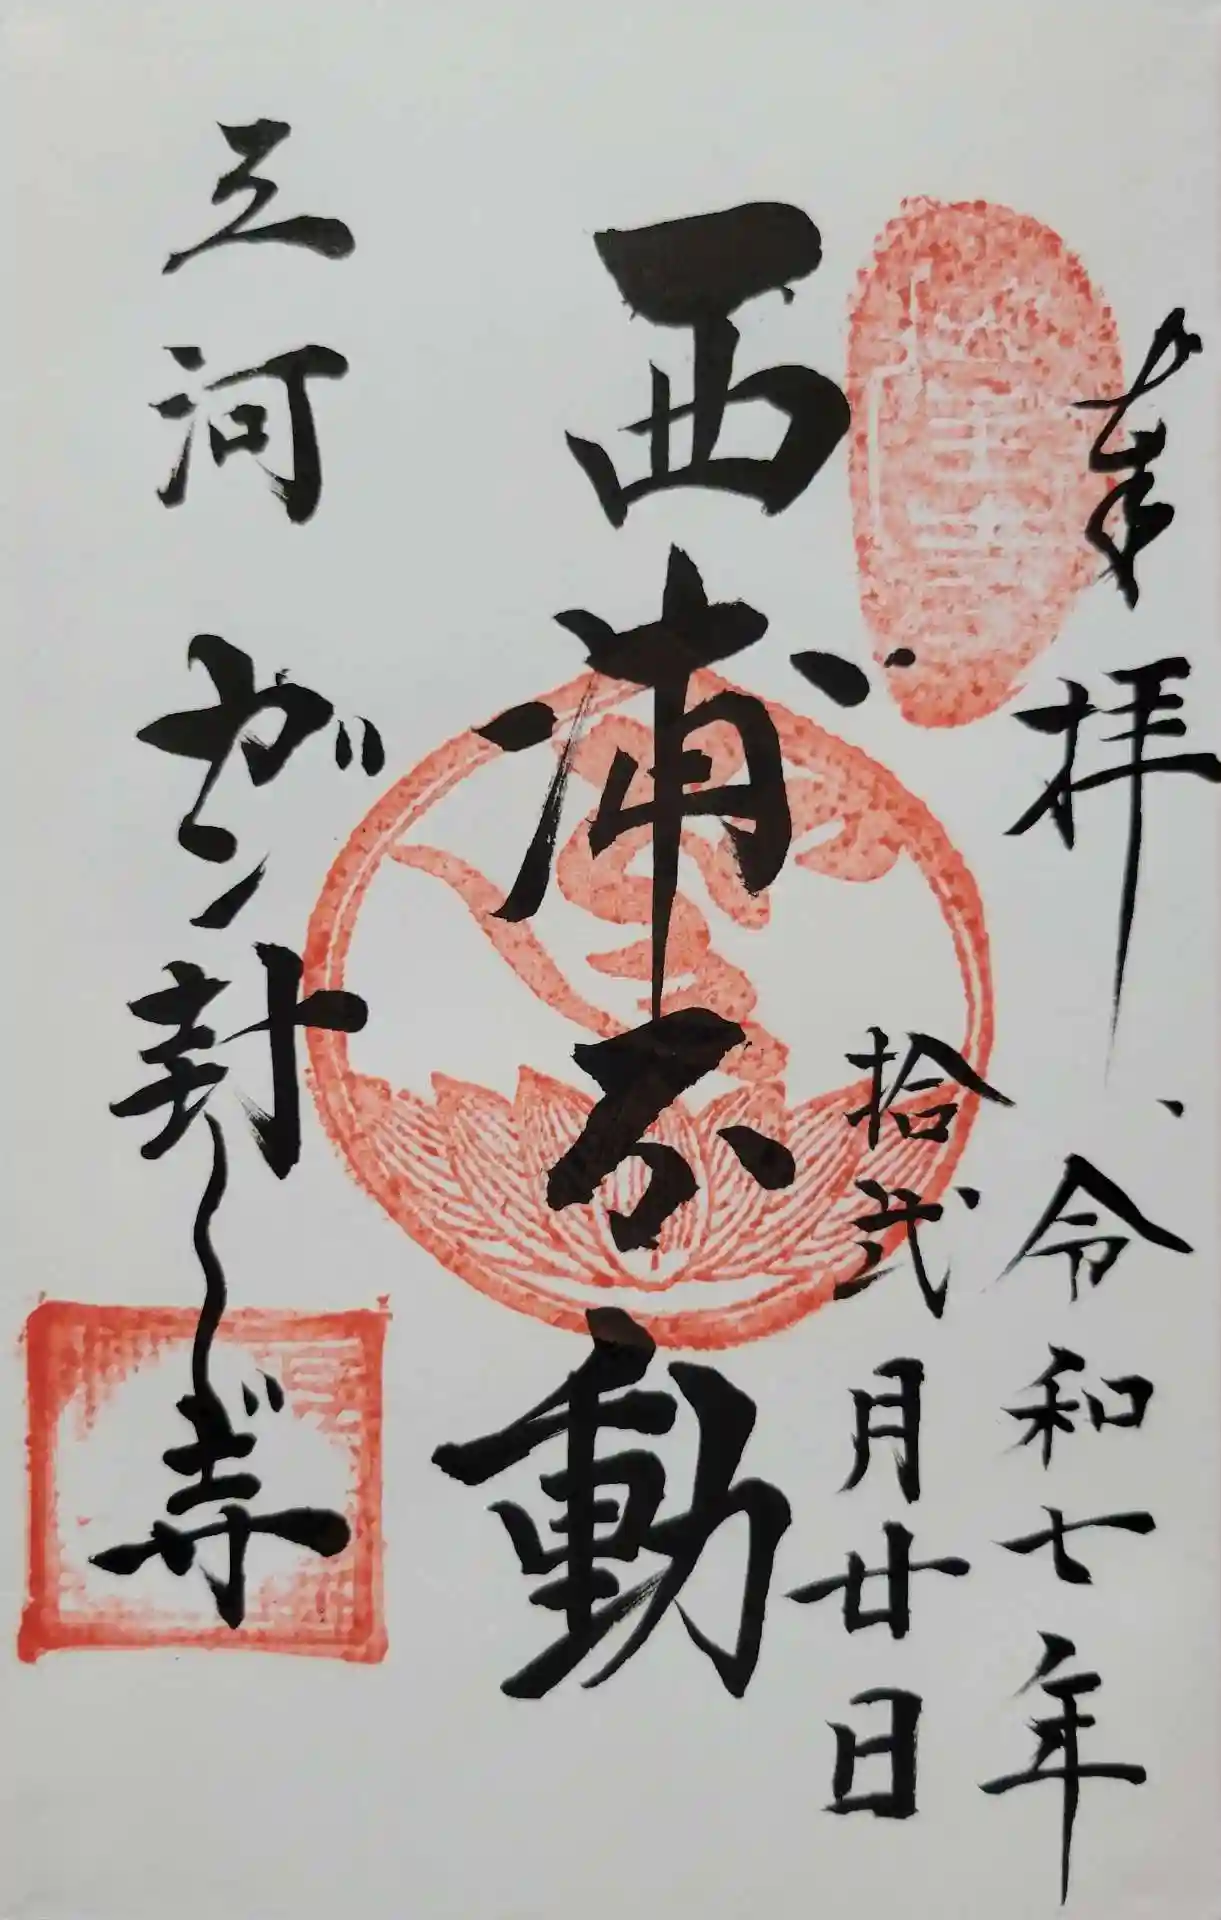 奉拝、令和七年
拾弐月廿日
西浦不動
三河 ガン封じ寺